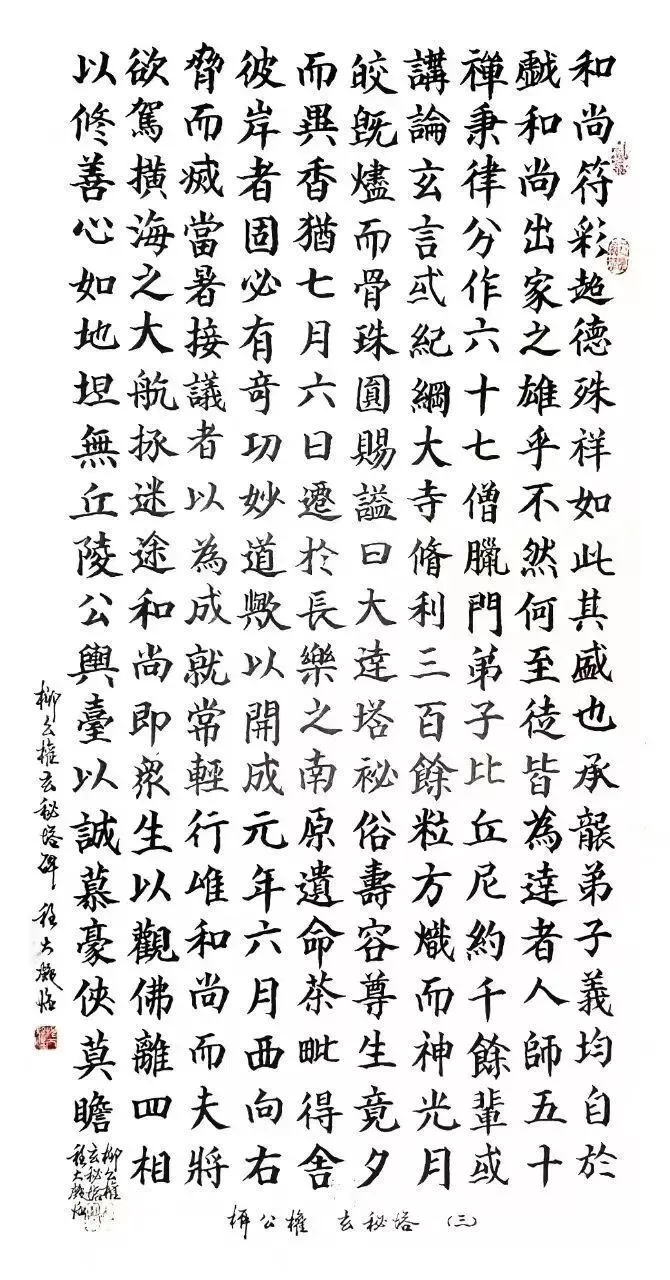 和尚符彩超德殊祥如此其盛也承襲弟子義均自於
戲和尚出家之雄乎不然何至徒皆為達者人師五十
禪秉律分作六十七僧臘門弟子比丘尼約千餘輩或
講論玄言或紀綱大寺脩利三百餘粒方熾而神光月
皎既燼而骨珠圓賜謚曰大達塔祕俗壽容尊生竟夕
而異香猶七月六日遷於長樂之南原遺命荼毗得舍
彼岸者固必有奇功妙道歟以開成元年六月西向右
脅而滅當暑接議者以為成就常輕行唯和尚而夫將
欲駕橫海之大航拯迷途和尚即衆生以觀佛離四相
以修善心如地坦無丘陵公輿臺以誠慕豪俠莫瞻
柳公權玄秘塔碑 程大臨
柳公權
玄秘塔
程大
柳公權 玄秘塔 (三)